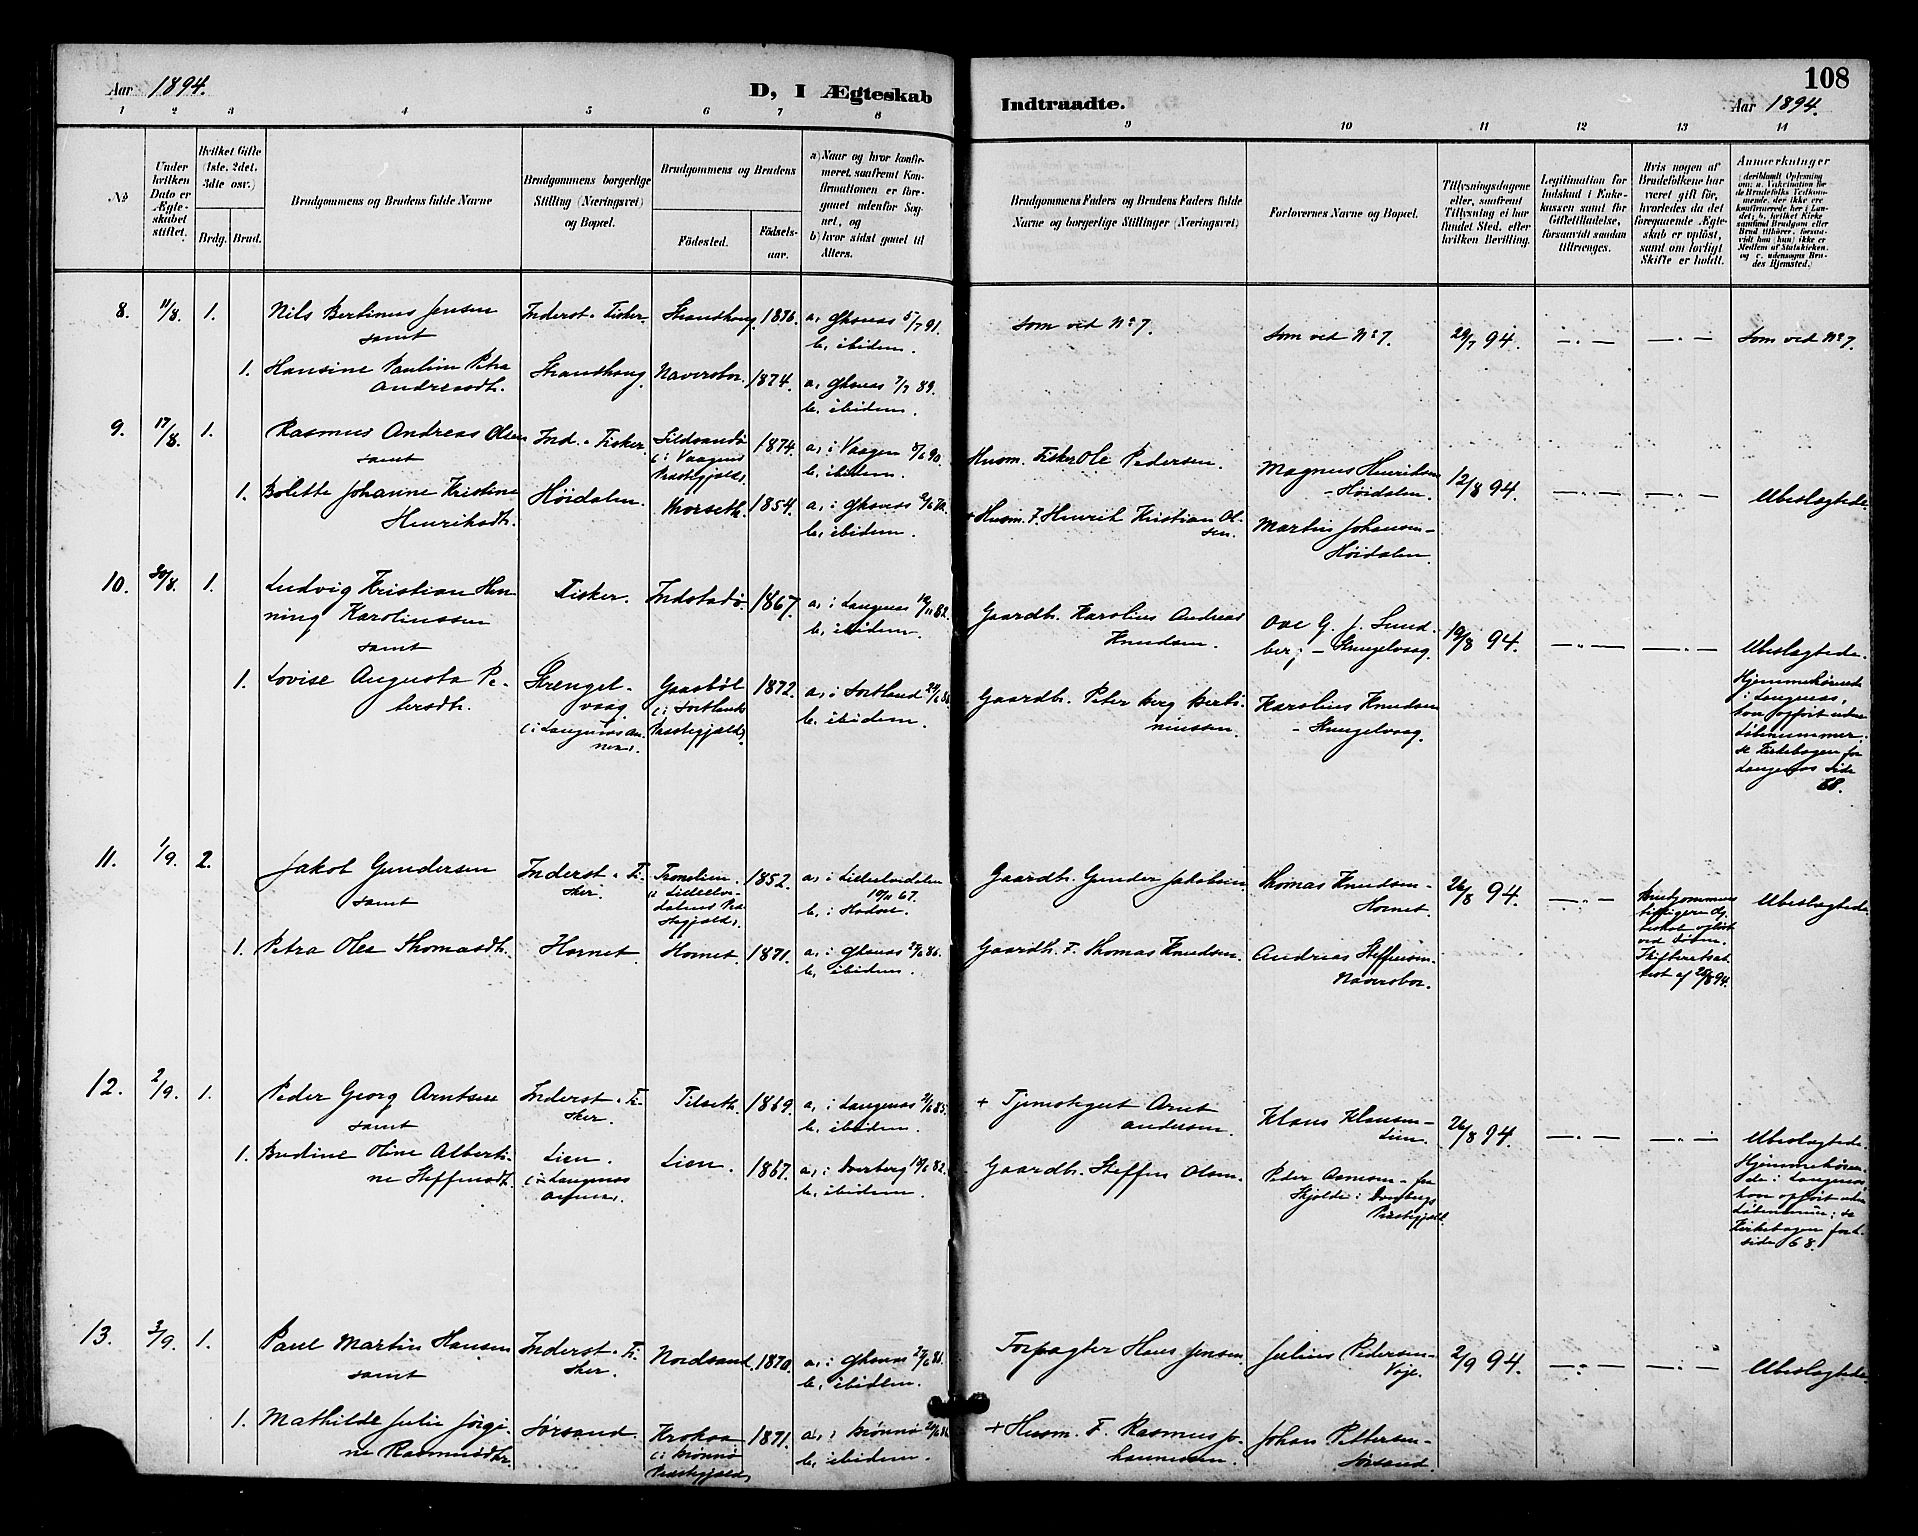 108
Aar 1894.
D, I Ægteskab
Indtraadte.
Aar 1894.
1 2 3 4 5 6 7 8 9 10 11 12 13 14
No
Under hvilken Dato er Ægteskabet stiftet.
Hvilket Gifte (1ste, 2det, 3die osv.)
Brdg. Brud.
Brudgommens og Brudens fulde Navne
Brudgommens borgerlige Stilling (Næringsvei) og Bopæl.
Brudgommens og Brudens
Fødested.
Fødselsaar.
a) Naar og hvor konfirmeret, samfremt Konfirmationen er foregaaet udenfor Sognet, og
b) hvor sidst gaaet til Alters.
Brudgommens Faders og Brudens Faders fulde Navne og borgerlige Stillinger (Næringsvei)
Forlovernes Navne og Bopæl.
Tillysningsdagene eller, samfremt Tillysning ei har fundet Sted, efter hvilken Bevilling.
Legitimation for Indskud i Enkekassen samt for Giftetilladelse, forsaavidt saadan tiltrænges.
Hvis nogen af Brudefolkene har været gift før, hvorledes da det foregaaende Ægteskab er opløst, samt om lovligt Skifte er holdt.
Anmærkninger
8. 11/8. 1. Nils Bertinus Jensen Inderst. Fisker. Strandhaug. 1876. a, Øksnes 5/7 91. som ved No 7. som ved No 7. 29/7 94. — . — — . — som ved No 7.
samt b, ibidem.
1. Hansine Pauline Petra Strandhaug Naversbor. 1874. a, Øksnes 7/7 89.
Andreasdtr. b, ibidem.
9. 17/8. 1. Rasmus Andreas Olsen Ind. Fisker. 1874. a, i Vaagen 90. Husm. Fisker Ole Pedersen. Magnus Henriksen
samt (i Vaagens Præstegjæld) b, ibidem. - Høidalen. 12/8 94. — . — — . — Ubeslægtede.
1. Bolette Johanne Kristine Høidalen. 1854. a, i Øksnes b, ibidem.
Henriksdtr. + Husm. F. Henrik Kristian Olsen. Martin Johansen - Høidalen.
10. 30/8. 1. Ludvig Kristian Henning Karolinssen Fisker. Indstadø. 1867. a, i Langenes 82. Gaardb. Karolius Andreas Knudsen. Ove G. J. Sundberg - Strengelvaag. 19/8 94. — . — — . — Ubeslægtede.
samt b, ibidem.
1. Lovise Augusta Petersdtr. Strengelvaag (i Langenes Annex). Gaasbøl (i Sortlands Præstegjæld). 1872. a, i Sortland b, ibidem. Gaardb. Peter Berg Bertiniussen Karolius Knudsen - Strengelvaag. Hjemmehørende i Langenes, hvor opført uden Løbenummer; se Kirkebogen for Langenes Side 68.
11. 1/9. 2. Jakob Gundersen Inderst. Fisker. 1852. a, i b, i Hadsel. Gaardb. Gunder Jakobsen Thomas Knudsen - Hornet. 26/8 94. — . — Brudgommens tidligere Ægteskab opløst ved Døden. Skifteretsattest af 29/8 94. Ubeslægtede.
samt
1. Petra Olea Thomasdtr. Hornet. Hornet. 1871. a, i Øksnes 86. b, ibidem. Gaardb. F. Thomas Knudsen. Andreas Steffensen - Naversbor.
12. 2/9. 1. Peder Georg Arntsen Inderst. Fisker. Tilseth. 1869. a, i Langenes 85. b, ibidem. + Tjenestegut Arnt Andersen. Klaus Klausen - Lien. 26/8 94. — . — — . — Ubeslægtede.
samt
1. Budine Oline Albertine Steffensdtr. Lien. (i Langenes Annex). Lien. 1867. a, i Dverberg 82. b, ibidem. Gaardb. Steffen Olsen. Peder Asmsen - fra Skjolde i Dverbergs Præstegjæld. Hjemmehørende i Langenes, hvor opført uden Løbenummer; se Kirkebogen for L. side 68.
13. 3/9. 1. Paul Martin Hansen Inderst. Fisker. Nordsand. 1870. a, i Øksnes 86. b, ibidem. Forpagter Hans Jensen. Julius Pedersen - Veje. 2/9 94. — . — — . — Ubeslægtede.
samt
1. Mathilde Julie Jørgine Rasmusdtr. Sørsand. Krokaa (i Brønnø Præstegjæld) 1871. a, i Brønnø b, ibidem. + Husm. F. Rasmus Johannessen. Johan Pettersen - Sørsand.